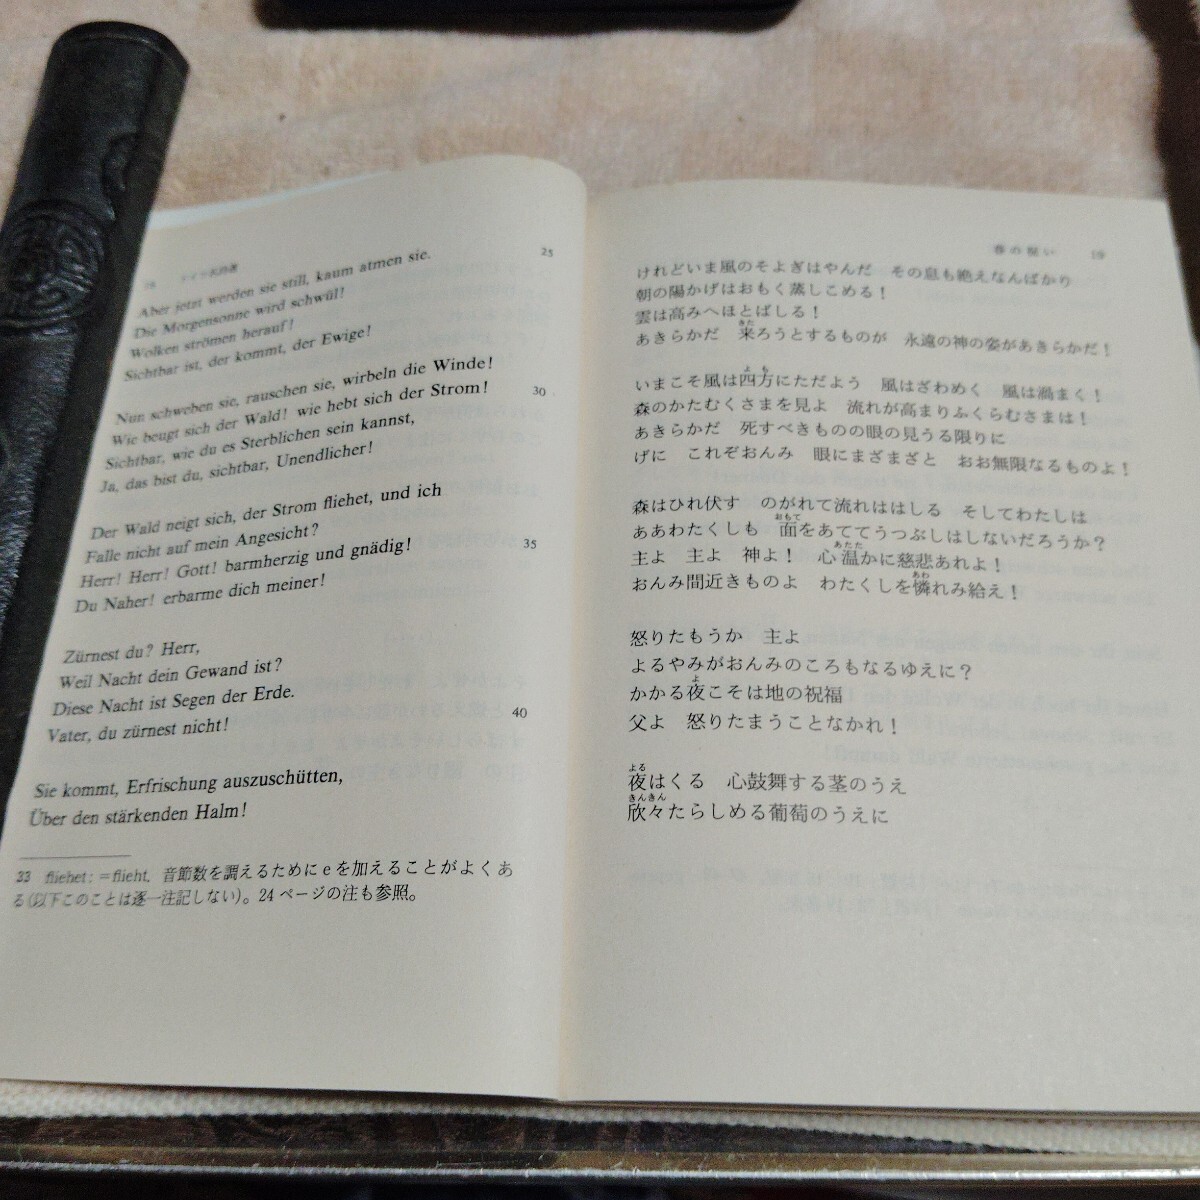 ドイツ名詩選
Aber jetzt werden sie still, kaum atmen sie. 25
Die Morgensonne wird schwül!
Wolken strömen herauf!
Sichtbar ist, der kommt, der Ewige!
Nun schweben sie, rauschen sie, wirbeln die Winde!
Wie beugt sich der Wald! wie hebt sich der Strom! 30
Sichtbar, wie du es Sterblichen sein kannst,
Ja, das bist du, sichtbar, Unendlicher!
Der Wald neigt sich, der Strom fliehet, und ich
Falle nicht auf mein Angesicht?
Herr! Herr! Gott! barmherzig und gnädig! 35
Du Naher! erbarme dich meiner!
Zürnest du? Herr,
Weil Nacht dein Gewand ist?
Diese Nacht ist Segen der Erde.
Vater, du zürnest nicht! 40
Sie kommt, Erfrischung auszuschütten,
Über den stärkenden Halm!
33 fliehet: =flieht. 音節数を調えるためにeを加えることがよくあ
る(以下このことは逐一注記しない)。24ページの注も参照。
春の祝い 19
けれどいま風のそよぎはやんだ その息も絶えなんばかり
朝の陽かげはおもく蒸しこめる!
雲は高みへほとばしる!
あきらかだ 来ろうとするものが 永遠の神の姿があきらかだ!
いまこそ風は四方にただよう 風はざわめく 風は渦まく!
森のかたむくさまを見よ 流れが高まりふくらむさまは!
あきらかだ 死すべきものの眼の見うる限りに
げに これぞおんみ 眼にまざまざと おお無限なるものよ!
森はひれ伏す のがれて流れははしる そしてわたしは
ああわたくしも 面をあててうつぶしはしないだろうか?
主よ 主よ 神よ! 心温かに慈悲あれよ!
おんみ間近きものよ わたくしを憐れみ給え!
怒りたもうか 主よ
よるやみがおんみのころもなるゆえに?
かかる夜こそは地の祝福
父よ 怒りたまうことなかれ!
夜はくる 心鼓舞する茎のうえ
欣々たらしめる葡萄のうえに